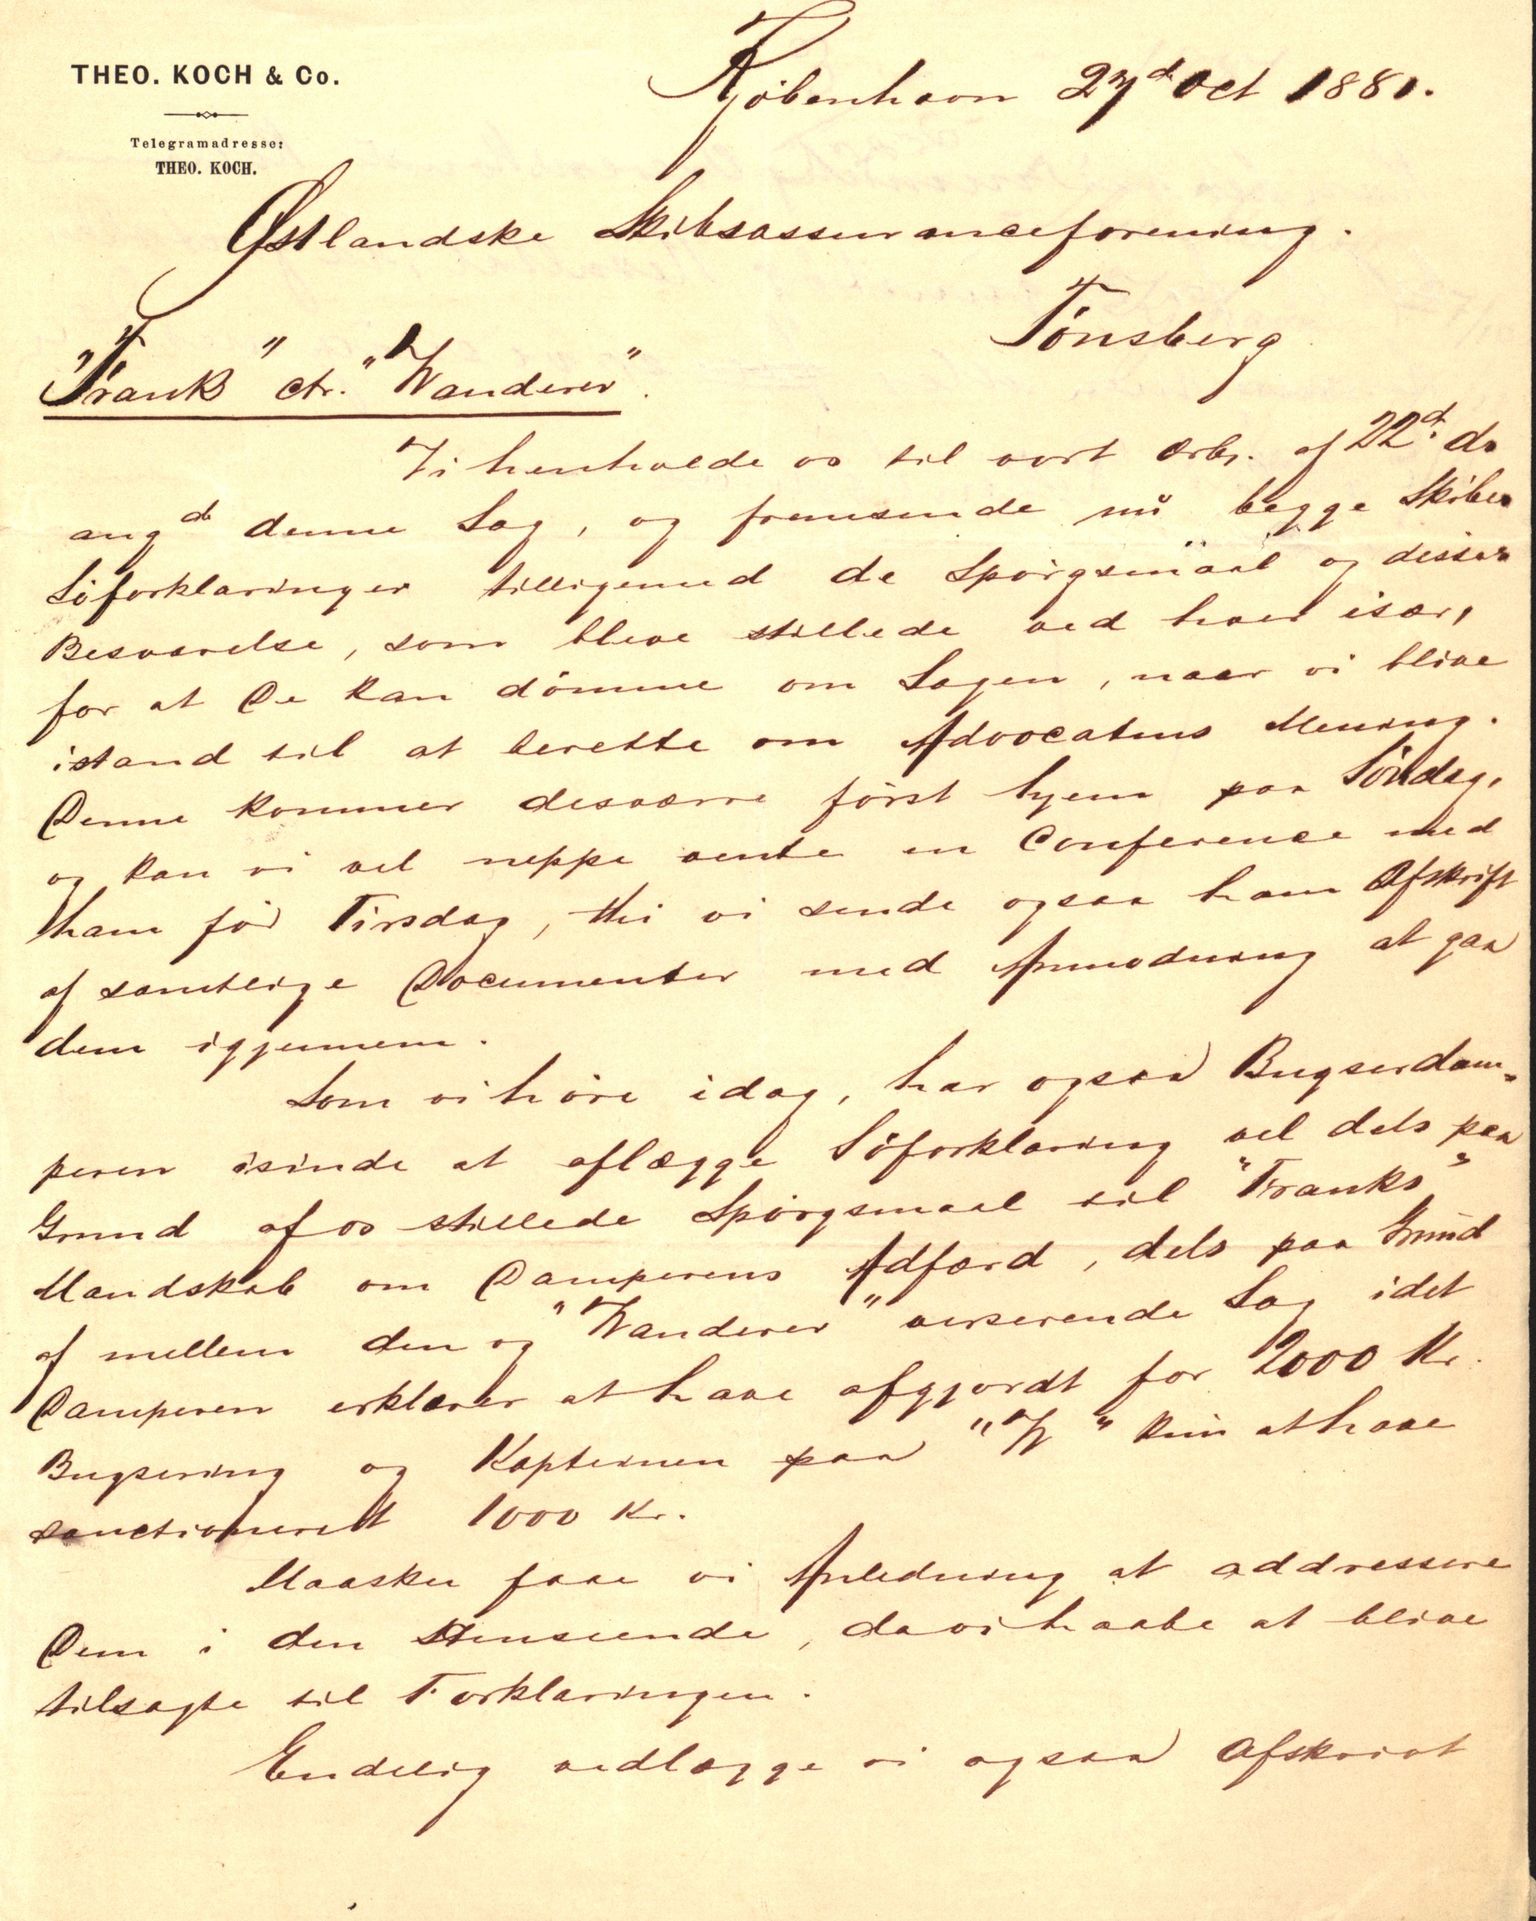 THEO. KOCH & Co.
Telegramadresse:
THEO. KOCH.
Kjøbenhavn 27d Oct 1881.
Østlandske Skibsassuranceforening.
Tønsberg
"Frank" ctr. "Wanderer".
Vi henholde os til vort ærb. af 22d. ds
angde denne Sag, og fremsende nu begge Skibes
Søforklaringer tilligemed de Spørgsmaal og disses
Besvarelse, som bleve stillede ved hver især,
for at De kan dømme om Sagen, naar vi blive
istand til at berette om Advocatens Mening.
Denne kommer desværre først hjem paa Søndag,
og kan vi vel neppe vente en Conference med
ham før Tirsdag, thi vi sende ogsaa ham Afskrift
af samtlige Documenter med Anmodning at gaa
dem igjennem.
Som vi høre idag, har ogsaa Bugserdam-
peren isinde at aflægge Søforklaring vel dels paa
Grund af os stillede Spørgsmaal til "Franks"
Mandskab om Damperens Adfærd, dels paa Grund
af mellem den og "Wanderer" verserende Sag idet
Damperen erklærer at have afgjordt for 2000 Kr.
Bugsering og Kapteinen paa "W" kun at have
sanctioneret 1000 Kr.
Maaskee faae vi Anledning at addressere
Dem i den Henseende, da vi haabe at blive
tilsagte til Forklaringen.
Endelig vedlægge vi ogsaa Afskrivt